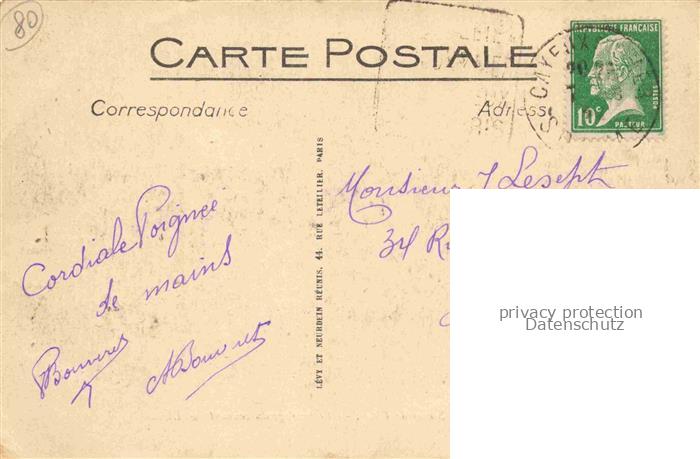 80
CARTE POSTALE
Correspondance
Adresse
RÉPUBLIQUE FRANÇAISE
POSTES
10c
PASTEUR
CAYEUX
20
Monsieur J Lesept
34 Ru
Cordiale Poignée
de mains
LÉVY ET NEURDEIN RÉUNIS, 44, RUE LETELLIER, PARIS
privacy protection
Datenschutz